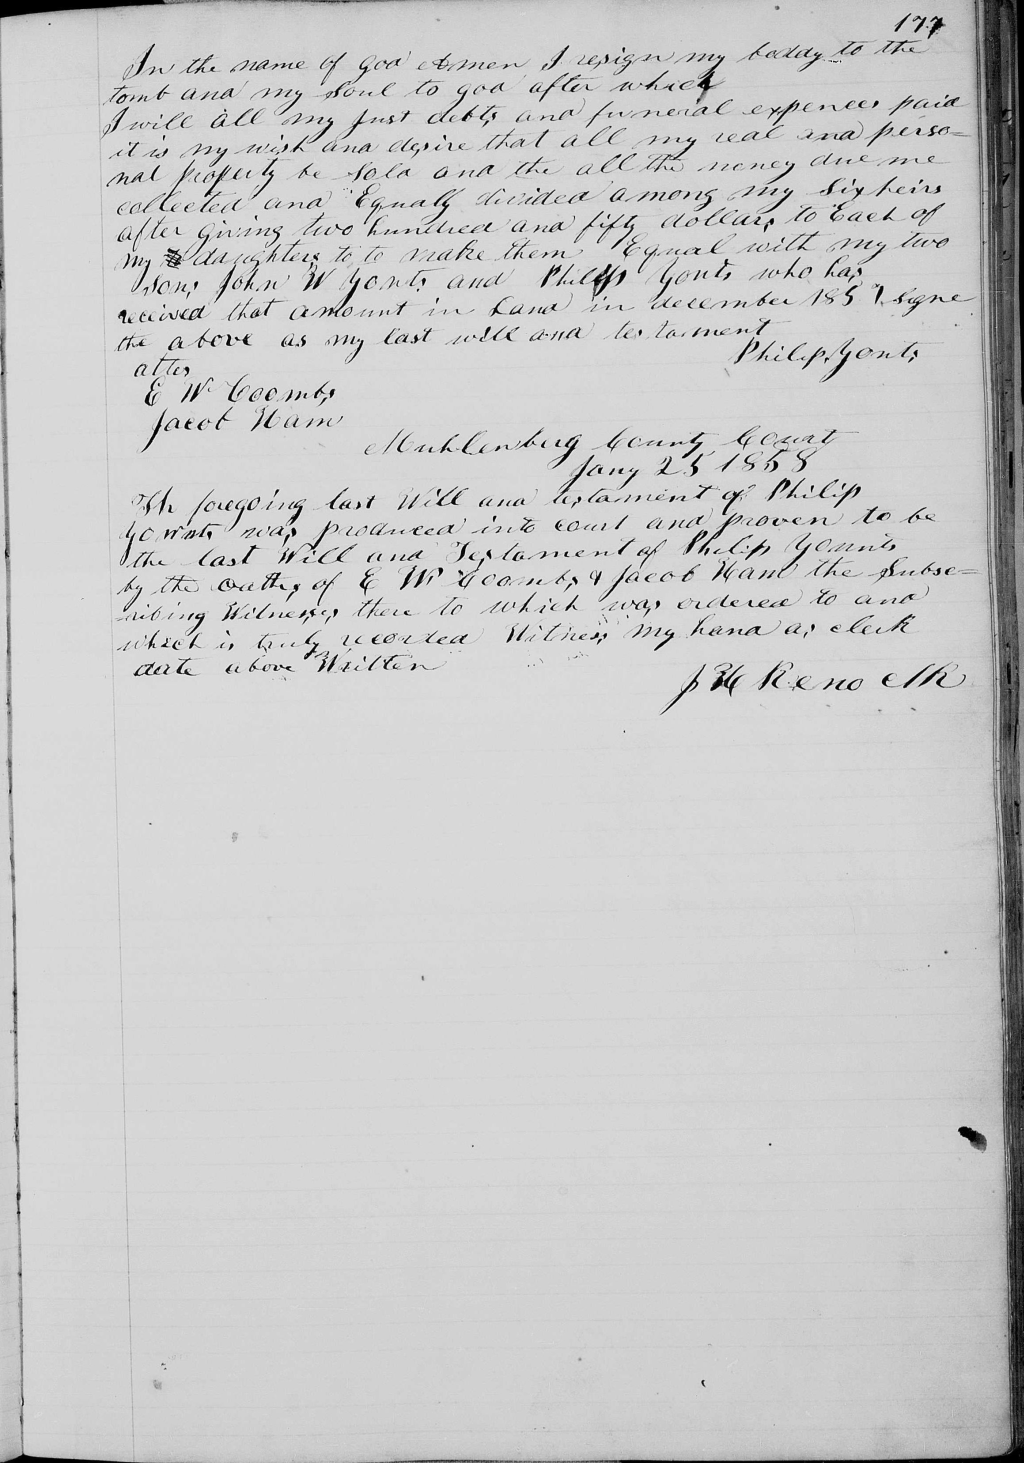 177
In the name of god Amen I resign my boddy to the
tomb and my Soul to god after which
I will all my just debts and funeral expences paid
it is my wish and desire that all my real and perso=
nal property be Sold and the all the money due me
collected and Equally divided among my Six heirs
after giving two hundred and fifty dollars to Each of
my daughters to to make them Equal with my two
Sons John W Yonts and Philip Yonts who has
received that amount in hand in december 1857 Signe
the above as my last will and testament
attes Philip Yonts
E W Coombs
Jacob Ham
Muhlenburg County Court
Jany 25 1858
Th foregoing last Will and testament of Philip
Yownts was produced into court and proven to be
the last Will and Testament of Philip Younts
by the oathes of E W Coombs & Jacob Ham the Subsc=
ribing Witnesses there to which was ordered to and
which is truly recorded Witness my hand as clerk
date above Written
J H Reno Clk